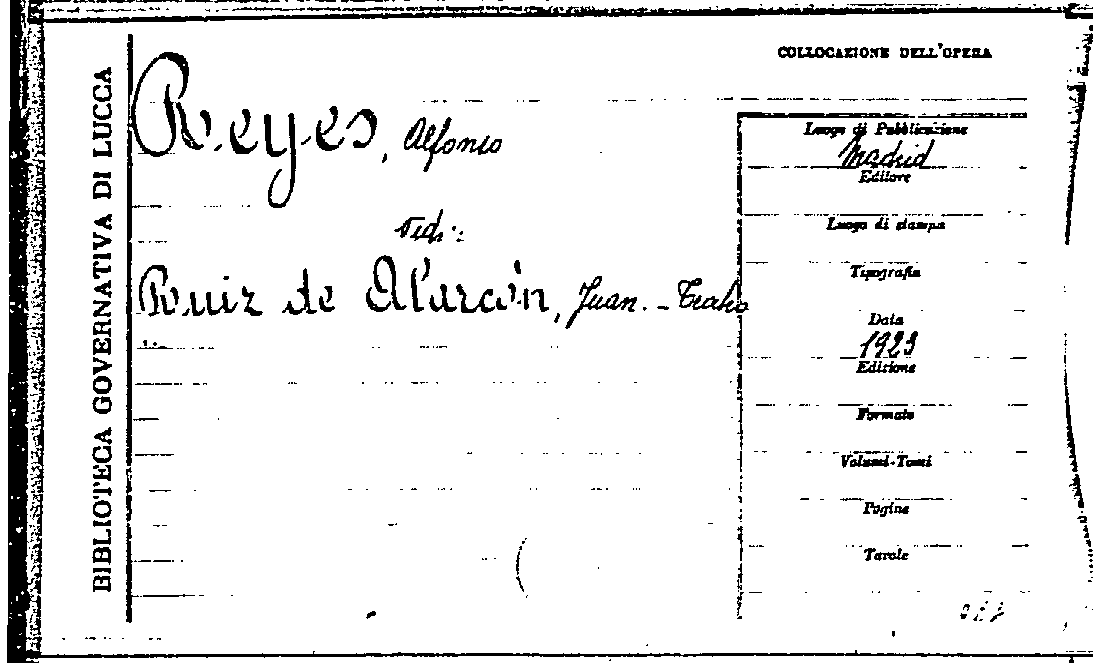 BIBLIOTECA GOVERNATIVA DI LUCCA
COLLOCAZIONE DELL'OPERA
Reyes, Alfonso
Vedi:
Ruiz de Alarcón, Juan. - Teatro
Luogo di Pubblicazione
Madrid
Editore
Luogo di stampa
Tipografia
Data
1923
Edizione
Formato
Volumi-Tomi
Pagine
Tavole